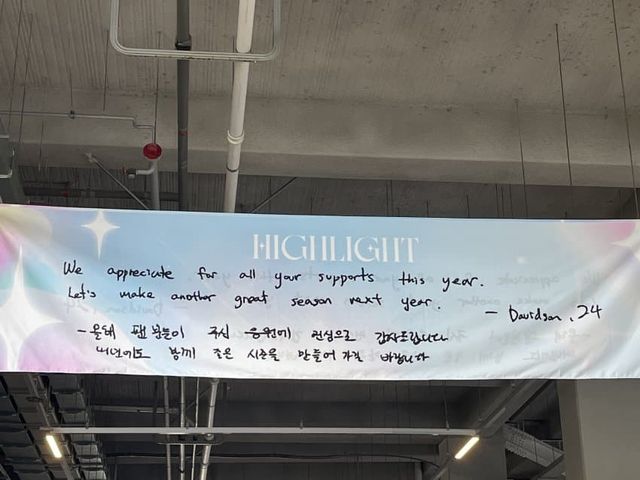 HIGHLIGHT
We appreciate for all your supports this year.
Let's make another great season next year. - Davidson, 24
- 올해 팬분들이 주신 응원에 진심으로 감사드립니다
내년에도 함께 좋은 시즌을 만들어 가길 바랍니다